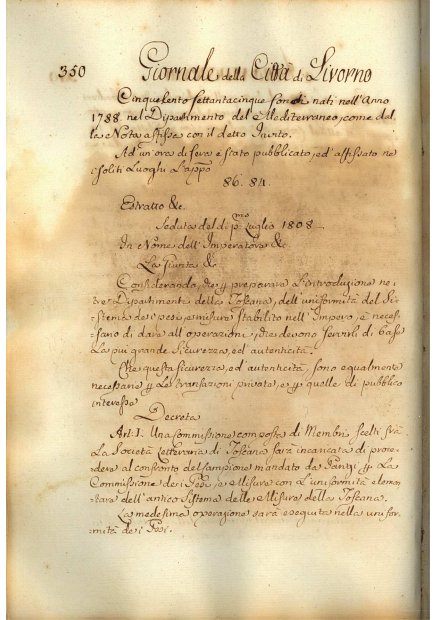 350 Giornale della Città di Livorno
Cinquecento settantacinque sono di nati nell'Anno
1788 nel Dipartimento del Mediterraneo, come dal-
la Nota affissa con il detto
Ad un'ora di sera è stato pubblicato, ed affissato ne
soliti Luoghi L'app.o
86. 84.
Estratto &c.
Seduta del dì p.mo Luglio 1808
In Nome dell'Imperatore &c.
La Giunta &c
Considerando, che p preparare L'introduzione ne
tre Dipartimenti della Toscana, dell'uniformità del Si-
stema dei pesi, e misure Stabilito nell'Impero, è neces-
sario di dare all'operazioni, che devono servirli di base
La più grande Sicurezza, ed autenticità.
Che questa sicurezza, ed autenticità, sono egualmente
necessarie p Le transazioni private, e p quelle di pubblico
interesse
Decreta
Art: I. Una Commissione composta di Membri scelti frà
La Società Letteraria di Toscana sarà incaricata di proce-
dere al confronto del Campione mandato da Parigi p La
Commissione dei Pesi, e Misure con L'uniformità elemen-
tare dell'antico Sistema delle Misure della Toscana.
La medesima operazione sarà eseguita nella unifor-
mità dei Pesi.